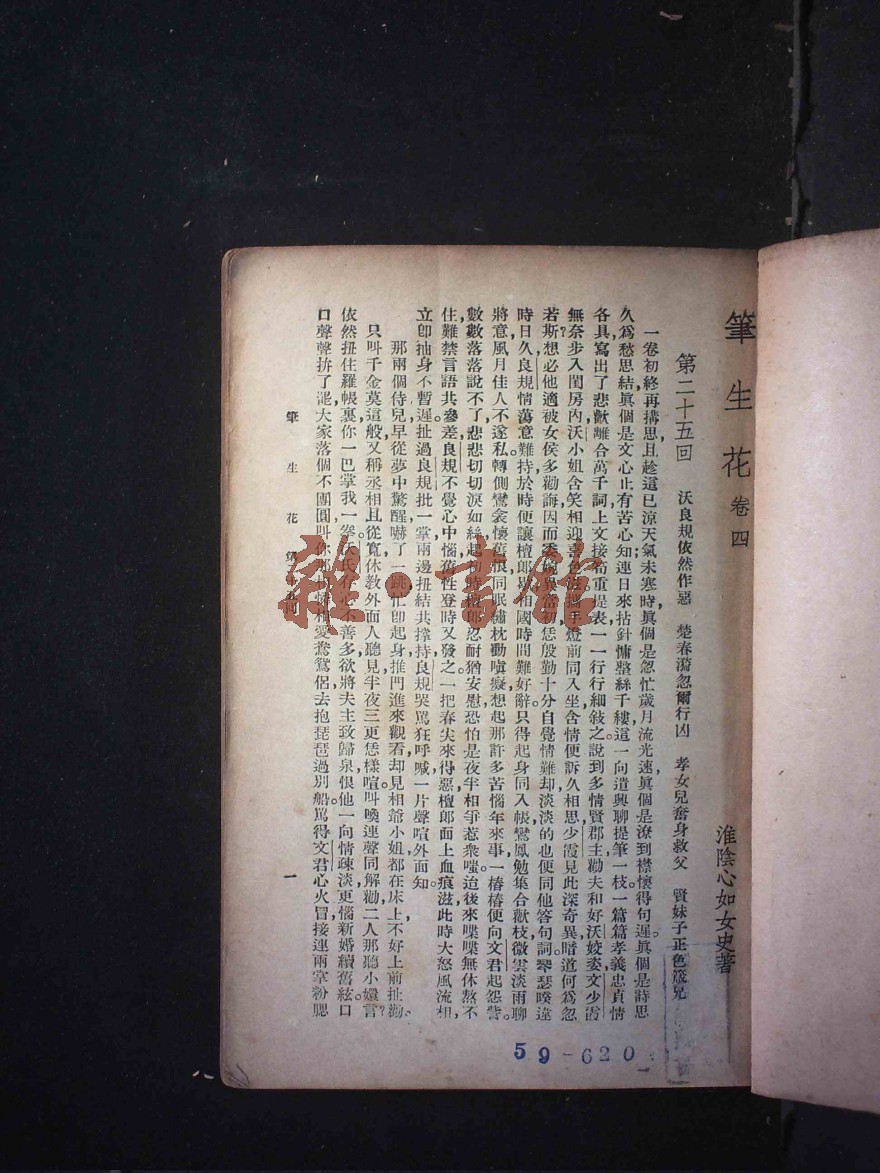 筆生花 卷四
淮陰心如女史著
第二十五回 沃良規依然作惡 楚春漪忽爾行凶 孝女兒奮身救父 賢妹子正色箴兄
一卷初終再搆思，且趁這已涼天氣未寒時，眞個是忽忙歲月流光速，眞個是潦到襟懷得句遲。眞個是詩思
久爲愁思結，眞個是文心止有苦心知，連日來拈針慵整絲千縷，這一向遣興聊提筆一枝。一篇篇孝義忠貞情
各具，寫出了悲歡離合萬千詞，上文接 重是表，一一行行細敍之。說到多情賢郡主，勸夫和好沃姣姿，文少霞
無奈步入閨房內，沃小姐含笑相迎喜 攜手燈前同入坐，含情便訴久相思，少霞見此深奇異，暗道何爲忽
若斯？想必他適被女侯多勸誨，因而 異當初，恁殷勤十分自覺情難却，淡淡的也便同他答句詞，琴瑟暌違
時日久，良規情蕩意難持，於時便讓檀郎 相國時間難好辭，只得起身同入帳，鸞鳳勉集合歡枝，微雲淡雨聊
將意，風月佳人不遂私。轉側鸞衾懷舊恨，同眠繡枕動嗔癡，想起那許多苦惱年來事，一樁樁便向文君起怨訾。
數數落落說不了，悲悲切切淚如絲，起初時檀郎忍耐猶安慰，恐怕是夜半相爭惹衆嗤。迨後來喋喋無休熬不
住，難禁言語共參差，良規不覺心中惱，舊性登時又發之。一把春尖來得惡，檀郎面上血痕滋，此時大怒風流相，
立卽抽身不暫遲。扯過良規批一掌，兩邊扭結共撐持，良規哭罵狂呼喊，一片聲喧外面知。
那兩個侍兒，早從夢中驚醒，嚇了一跳，忙卽起身，推門進來觀看，却見相爺小姐，都在床上，不好上前扯勸。
只叫千金莫這般，又稱丞相且從寬，休敎外面人聽見，半夜三更恁樣喧。叫喚連聲同解勸，二人那聽小鬟言？
依然扭住羅帳裏，你一巴掌我一拳。沃氏存心 不善，多欲將夫主致歸泉，恨他一向情疎淡，更惱新婚續舊絃。口
口聲聲拚了罷，大家落個不團圓，叫你那 愛鴛鴦侶，去抱琵琶過別船。罵得文君心火冒，接連兩掌粉腮
筆生花 第二十五回 一
雜·書館
59-620